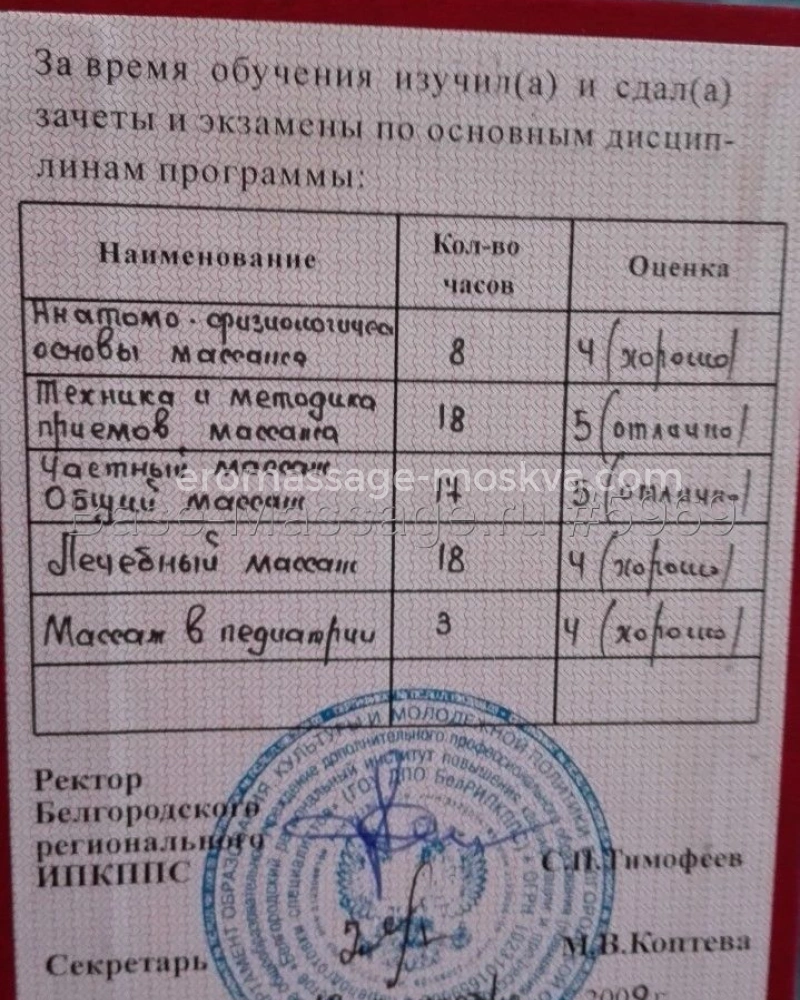 За время обучения изучил(а) и сдал(а)
зачеты и экзамены по основным дисцип-
линам программы:
Наименование Кол-во часов Оценка
Анатомо-физиологичес
основы массажа 8 4 (хорошо)
Техника и методика
приемов массажа 18 5 (отлично)
Частный массаж
eromassage-moskva.com
Общий массаж 17 5 (отлично)
Base-Massage.ru #5969
Лечебный массаж 18 4 (хорошо)
Массаж в педиатрии 3 4 (хорошо)
КУЛЬТУРЫ И МОЛОДЕЖНОЙ ПОЛИТИКИ
дополнительного профессионального
региональный институт повышения
(ГОУ ДПО БелРИПКППС)
Ректор
Белгородского
регионального
ИПКППС С.П.Тимофеев
Секретарь М.В.Коптева